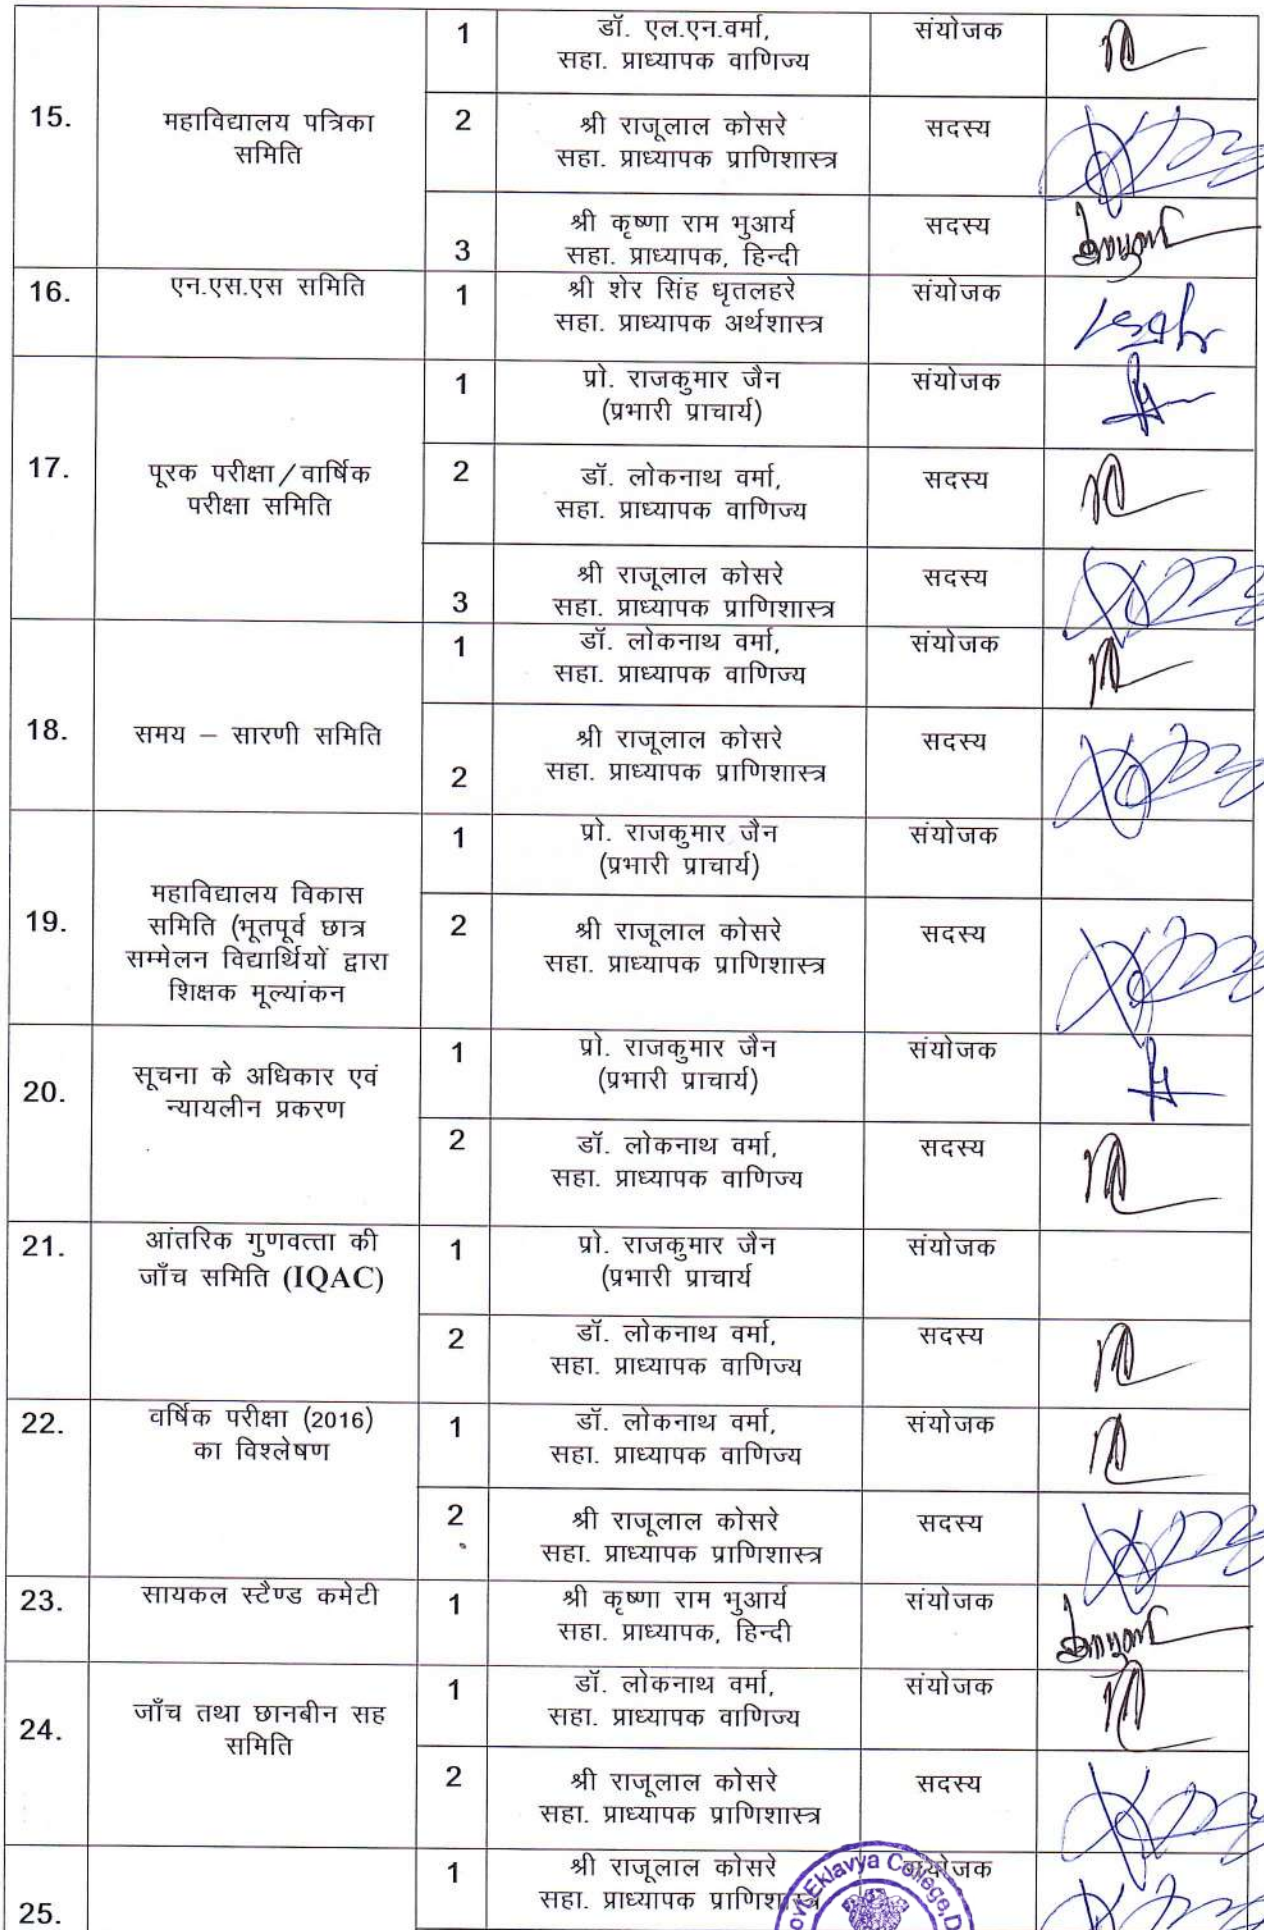 15.
महाविद्यालय पत्रिका
समिति
1
डॉ. एल.एन.वर्मा,
सहा. प्राध्यापक वाणिज्य
संयोजक
2
श्री राजूलाल कोसरे
सहा. प्राध्यापक प्राणिशास्त्र
सदस्य
3
श्री कृष्णा राम भुआर्य
सहा. प्राध्यापक, हिन्दी
सदस्य
16.
एन.एस.एस समिति
1
श्री शेर सिंह धृतलहरे
सहा. प्राध्यापक अर्थशास्त्र
संयोजक
17.
पूरक परीक्षा / वार्षिक
परीक्षा समिति
1
प्रो. राजकुमार जैन
(प्रभारी प्राचार्य)
संयोजक
2
डॉ. लोकनाथ वर्मा,
सहा. प्राध्यापक वाणिज्य
सदस्य
3
श्री राजूलाल कोसरे
सहा. प्राध्यापक प्राणिशास्त्र
सदस्य
18.
समय – सारणी समिति
1
डॉ. लोकनाथ वर्मा,
सहा. प्राध्यापक वाणिज्य
संयोजक
2
श्री राजूलाल कोसरे
सहा. प्राध्यापक प्राणिशास्त्र
सदस्य
19.
महाविद्यालय विकास
समिति (भूतपूर्व छात्र
सम्मेलन विद्यार्थियों द्वारा
शिक्षक मूल्यांकन
1
प्रो. राजकुमार जैन
(प्रभारी प्राचार्य)
संयोजक
2
श्री राजूलाल कोसरे
सहा. प्राध्यापक प्राणिशास्त्र
सदस्य
20.
सूचना के अधिकार एवं
न्यायलीन प्रकरण
1
प्रो. राजकुमार जैन
(प्रभारी प्राचार्य)
संयोजक
2
डॉ. लोकनाथ वर्मा,
सहा. प्राध्यापक वाणिज्य
सदस्य
21.
आंतरिक गुणवत्ता की
जाँच समिति (IQAC)
1
प्रो. राजकुमार जैन
(प्रभारी प्राचार्य
संयोजक
2
डॉ. लोकनाथ वर्मा,
सहा. प्राध्यापक वाणिज्य
सदस्य
22.
वर्षिक परीक्षा (2016)
का विश्लेषण
1
डॉ. लोकनाथ वर्मा,
सहा. प्राध्यापक वाणिज्य
संयोजक
2
श्री राजूलाल कोसरे
सहा. प्राध्यापक प्राणिशास्त्र
सदस्य
23.
सायकल स्टैण्ड कमेटी
1
श्री कृष्णा राम भुआर्य
सहा. प्राध्यापक, हिन्दी
संयोजक
24.
जाँच तथा छानबीन सह
समिति
1
डॉ. लोकनाथ वर्मा,
सहा. प्राध्यापक वाणिज्य
संयोजक
2
श्री राजूलाल कोसरे
सहा. प्राध्यापक प्राणिशास्त्र
सदस्य
25.
1
श्री राजूलाल कोसरे
सहा. प्राध्यापक
संयोजक
Eklavya College,